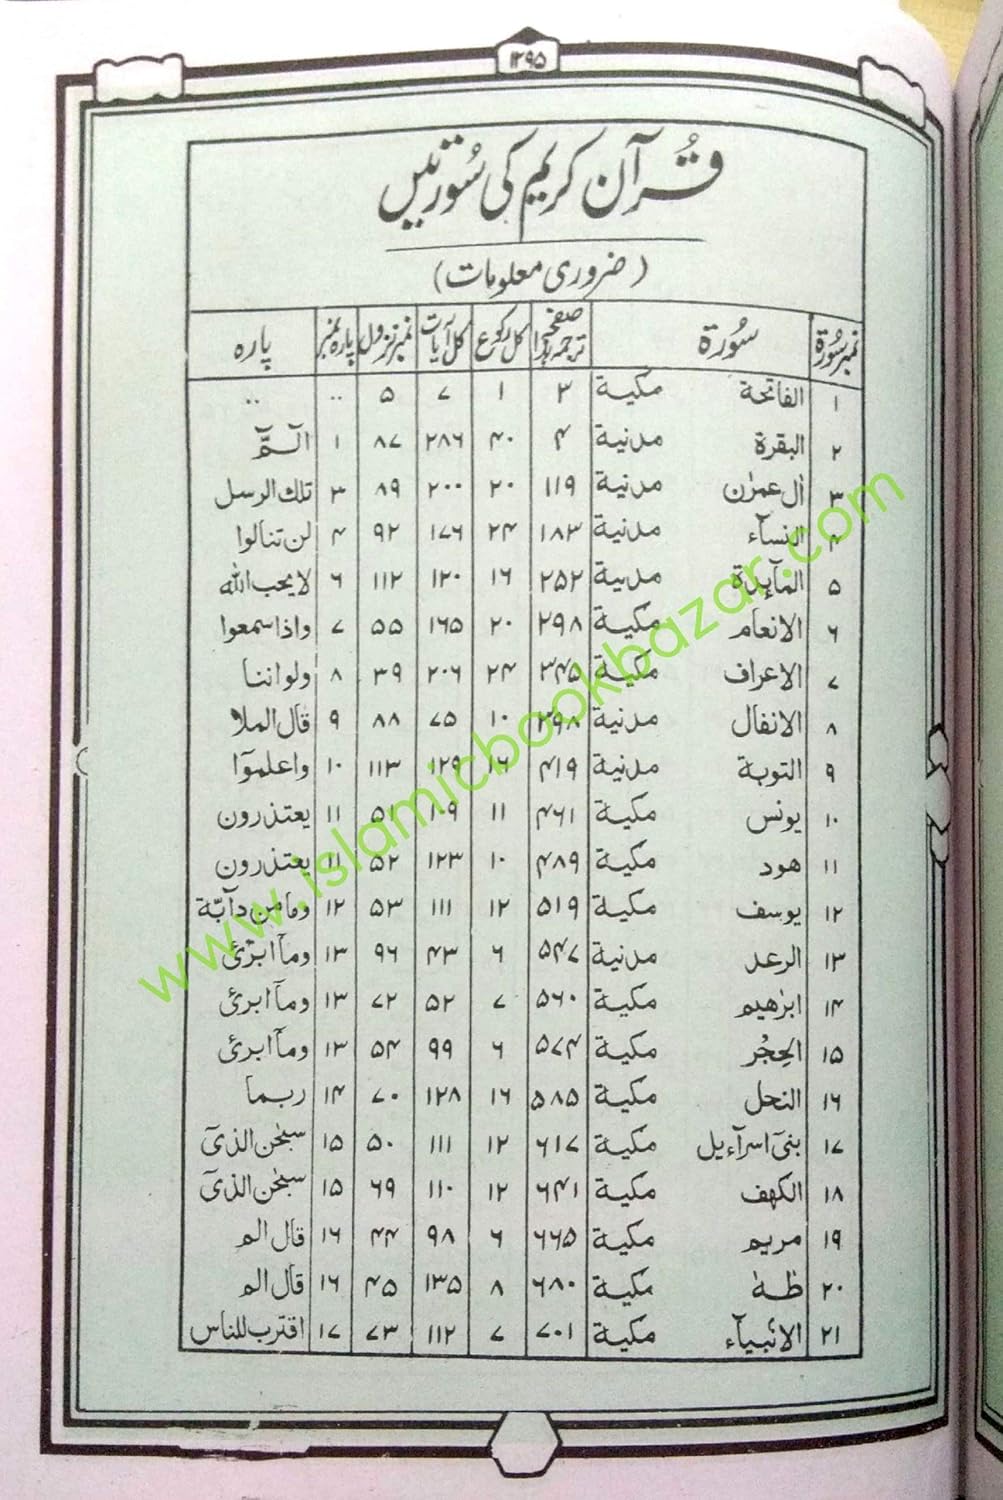 ۱۲۹۵
قُرآن کریم کی سُورتیں
(ضروری معلومات)
نمبر سورۃ سُورۃ صفحہ ترجمہ ہٰذا کل رکوع کل آیات نمبر نزول پارہ نمبر پارہ
۱ الفاتحة مكية ۳ ۱ ۷ ۵ .. ..
۲ البقرة مدنية ۴ ۴۰ ۲۸۶ ۸۷ ۱ الٓمّٓ
۳ اٰل عمرٰن مدنية ۱۱۹ ۲۰ ۲۰۰ ۸۹ ۳ تلك الرسل
۴ النسآء مدنية ۱۸۳ ۲۴ ۱۷۶ ۹۲ ۴ لن تنالوا
۵ المآىِٕدة مدنية ۲۵۲ ۱۶ ۱۲۰ ۱۱۲ ۶ لا يحب الله
۶ الانعام مكية ۲۹۸ ۲۰ ۱۶۵ ۵۵ ۷ واذا سمعوا
۷ الاعراف مكية ۳۴۵ ۲۴ ۲۰۶ ۳۹ ۸ ولو اننا
۸ الانفال مدنية ۳۹۸ ۱۰ ۷۵ ۸۸ ۹ قال الملا
۹ التوبة مدنية ۴۱۹ ۱۶ ۱۲۹ ۱۱۳ ۱۰ واعلموٓا
۱۰ يونس مكية ۴۶۱ ۱۱ ۱۰۹ ۵۱ ۱۱ يعتذرون
۱۱ هود مكية ۴۸۹ ۱۰ ۱۲۳ ۵۲ ۱۱ يعتذرون
۱۲ يوسف مكية ۵۱۹ ۱۲ ۱۱۱ ۵۳ ۱۲ وما من دآبّة
۱۳ الرعد مدنية ۵۴۷ ۶ ۴۳ ۹۶ ۱۳ ومآ ابرّئ
۱۴ ابرٰهيم مكية ۵۶۰ ۷ ۵۲ ۷۲ ۱۳ ومآ ابرئ
۱۵ الحِجْر مكية ۵۷۴ ۶ ۹۹ ۵۴ ۱۳ ومآ ابرئ
۱۶ النحل مكية ۵۸۵ ۱۶ ۱۲۸ ۷۰ ۱۴ ربما
۱۷ بنىٓ اسرآءيل مكية ۶۱۷ ۱۲ ۱۱۱ ۵۰ ۱۵ سبحٰن الذىٓ
۱۸ الكهف مكية ۶۴۱ ۱۲ ۱۱۰ ۶۹ ۱۵ سبحٰن الذىٓ
۱۹ مريم مكية ۶۶۵ ۶ ۹۸ ۴۴ ۱۶ قال الم
۲۰ طٰهٰ مكية ۶۸۰ ۸ ۱۳۵ ۴۵ ۱۶ قال الم
۲۱ الانبيآء مكية ۷۰۱ ۷ ۱۱۲ ۷۳ ۱۷ اقترب للناس
www.islamicbookbazar.com